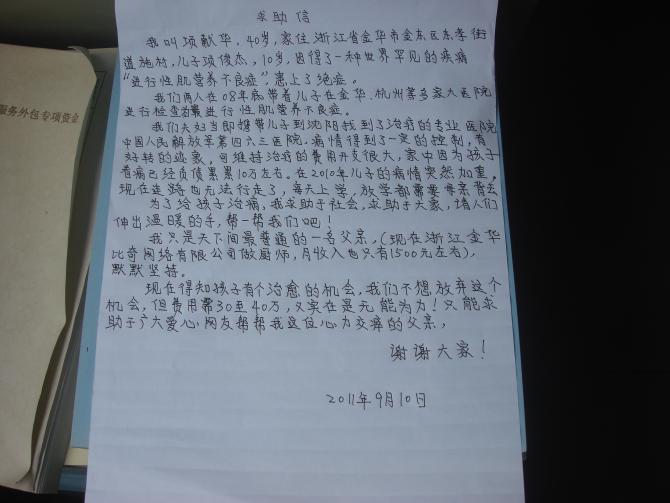 服务外包专项资金
求助信
我叫项献华，40岁，家住浙江省金华市金东区东孝街
道施村，儿子项俊杰，10岁，因得了一种世界罕见的疾病
“进行性肌营养不良症”患上了绝症。
我们两人在08年底带着儿子在金华、杭州等多家大医院
进行检查为进行性肌营养不良症。
我们夫妇当即携带儿子到沈阳找到了治疗的专业医院
中国人民解放军第四六三医院，病情得到了一定的控制，有
好转的迹象，可维持治疗的费用开支很大，家中因为孩子
看病已经负债累累10万左右。在2010年儿子的病情突然加重。
现在走路也无法行走了，每天上学，放学都需要母亲背去
为了给孩子治病，我求助于社会，求助于大家，请人们
伸出温暖的手，帮一帮我们吧！
我只是天下间最普通的一名父亲，（现在浙江金华
比奇网络有限公司做厨师，月收入也只有1500元左右），
默默坚持。
现在得知孩子有个治愈的机会，我们不想放弃这个
机会，但费用需30至40万，又实在是无能为力！只能求
助于广大爱心网友帮帮我这位心力交瘁的父亲，
谢谢大家！
2011年9月10日